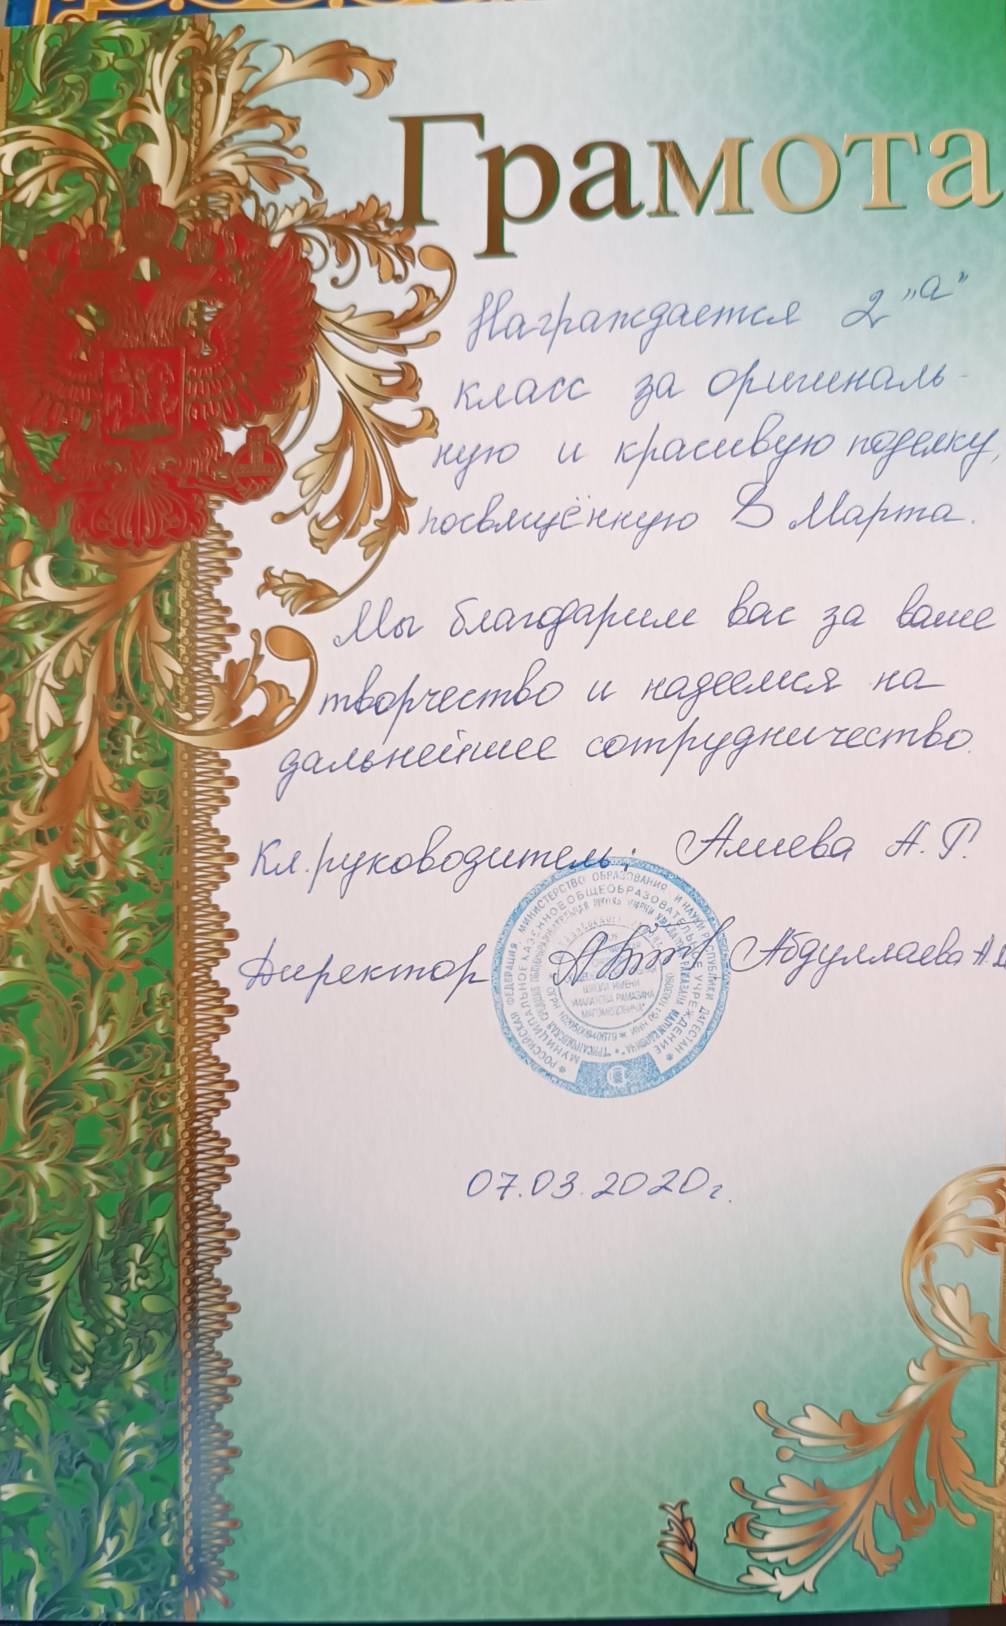 Грамота
Награждается 2 "а"
класс за ориги­наль-
ную и красивую поделку,
посвящённую 8 Марта.
Мы благодарим вас за ваше
творчество и надеемся на
дальнейшее сотрудничество.
Кл. руководитель: Алиева А. Г.
Директор Абдуллаева
РОССИЙСКАЯ ФЕДЕРАЦИЯ МИНИСТЕРСТВО ОБРАЗОВАНИЯ И НАУКИ РЕСПУБЛИКИ ДАГЕСТАН
МУНИЦИПАЛЬНОЕ КАЗЕННОЕ ОБЩЕОБРАЗОВАТЕЛЬНОЕ УЧРЕЖДЕНИЕ
07.03.2020г.